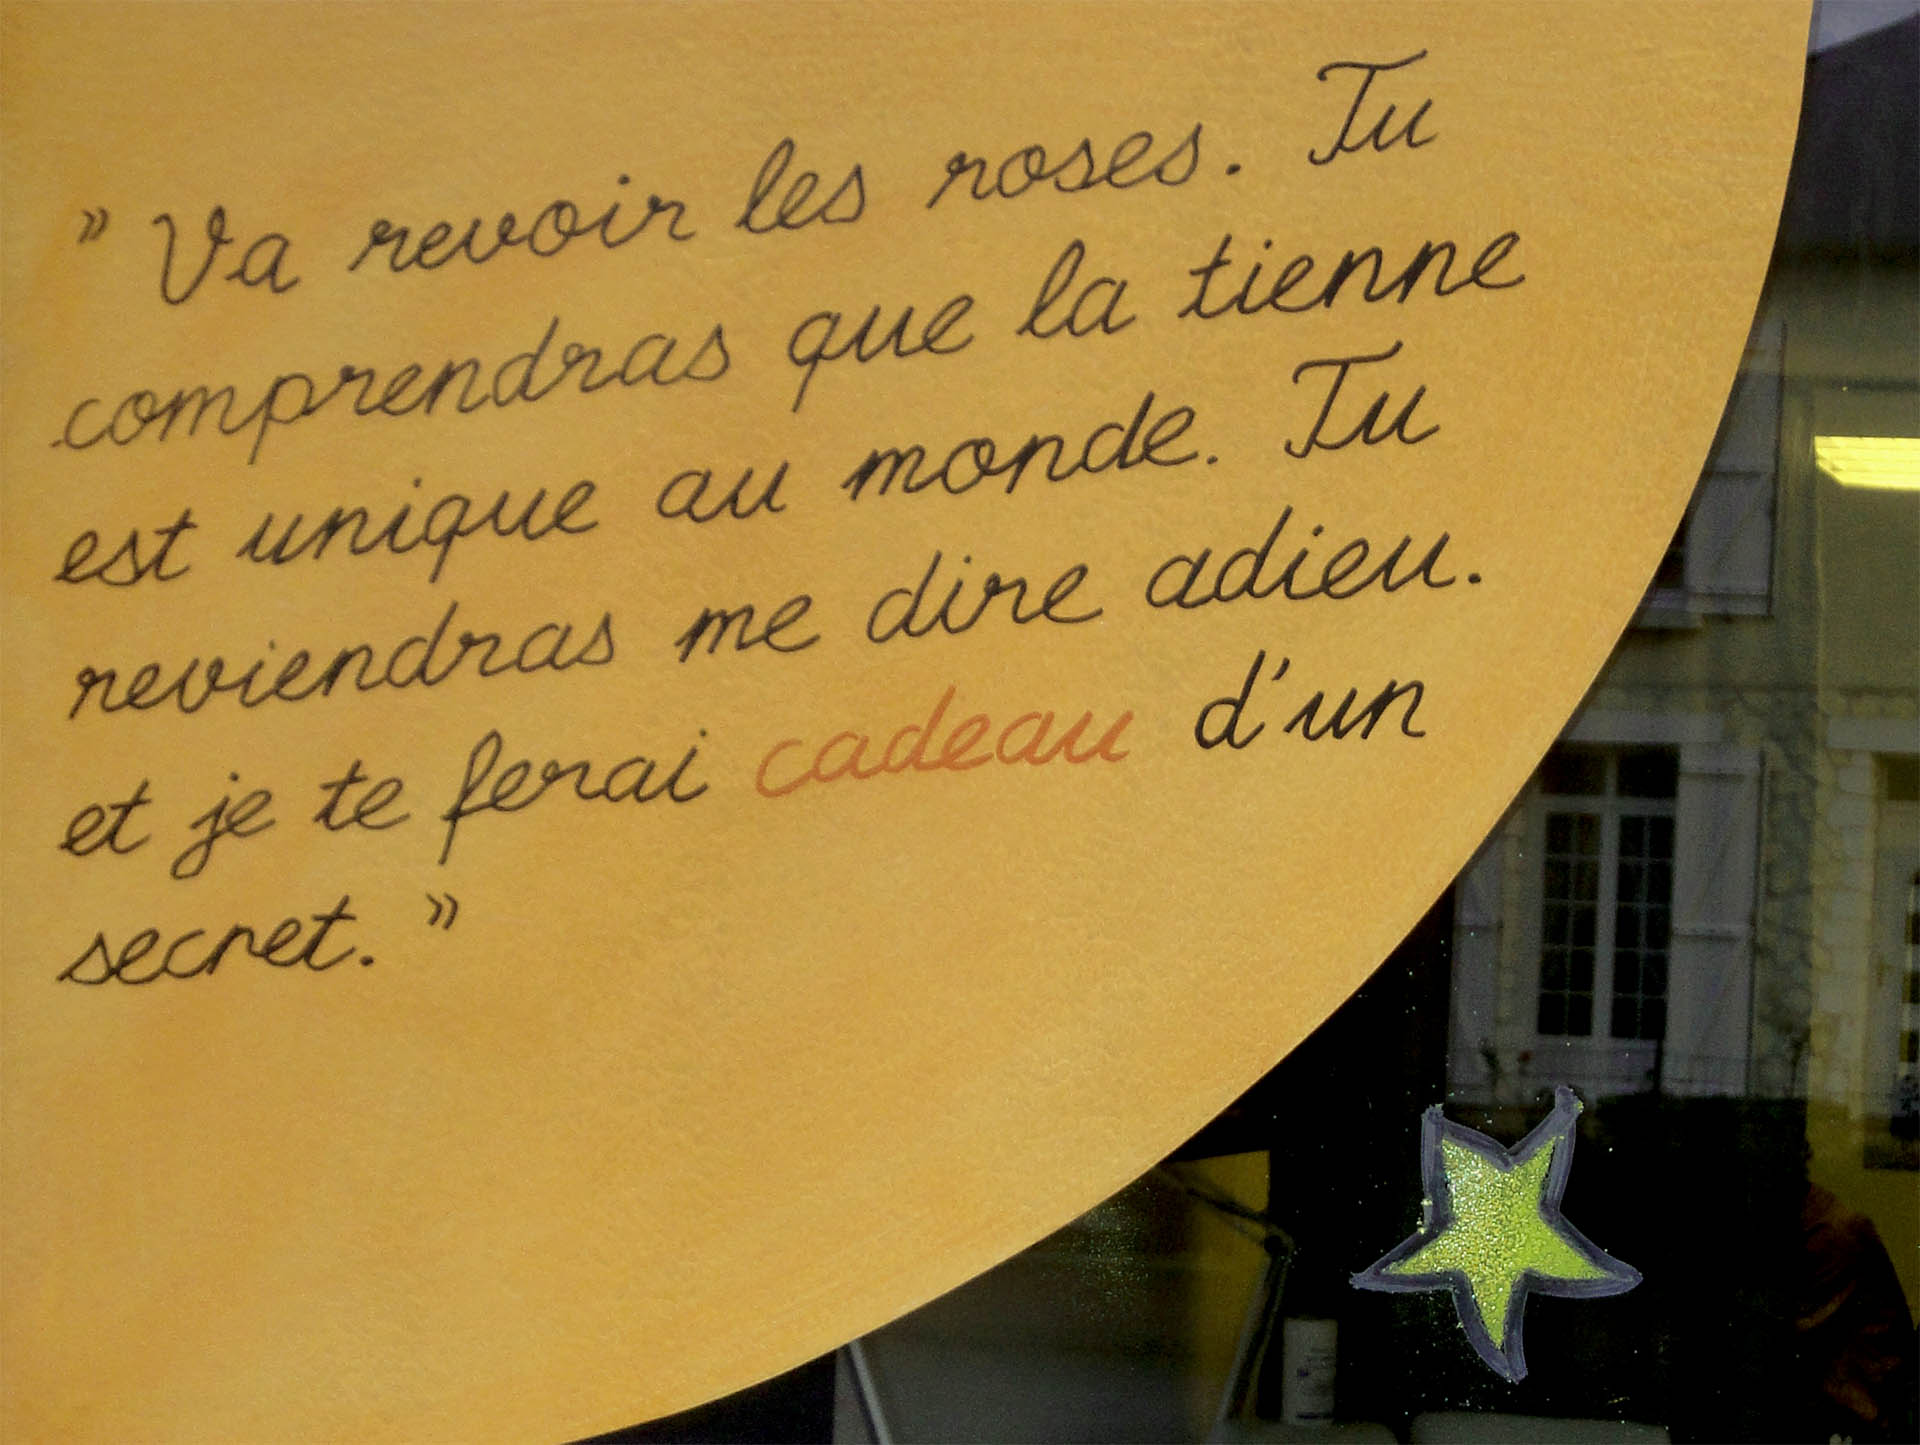 » Va revoir les roses. Tu
comprendras que la tienne
est unique au monde. Tu
reviendras me dire adieu.
et je te ferai cadeau d'un
secret. »